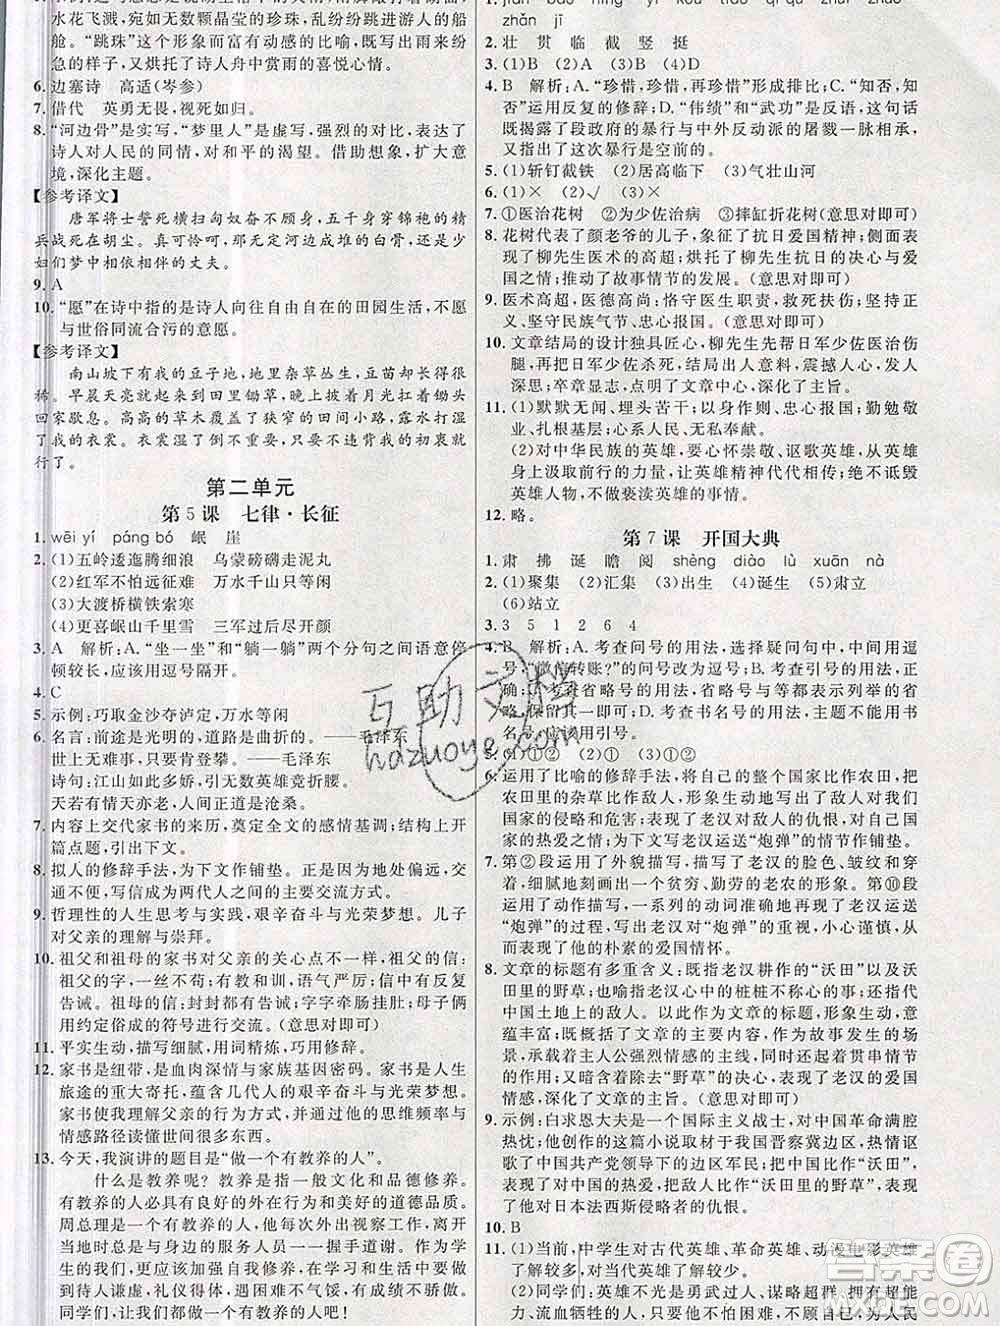 水花飞溅,宛如无数颗晶莹的珍珠,乱纷纷跳进了诗人的船
舱。“跳珠”这个形象而富有动感的比喻,刻画出雨来势之
急的样子,又烘托了诗人舟中赏雨的喜悦心情。
6. 边塞诗 高适(岑参)
7. 借代 英勇无畏,视死如归。
8. “河边骨”是实写,“梦里人”是虚写,强烈的对比,表达了
诗人对人民的同情,对和平的渴望。借助想象,扩大意
境,深化主题。
【参考译文】
唐军将士誓死横扫匈奴奋不顾身,五千身穿锦袍的精
兵战死在胡尘。真可怜呵,那无定河边成堆的白骨,还是少
妇们梦中相依相伴的丈夫。
9. A
10. “愿”在诗中指的是诗人向往自由自在的田园生活,不愿
与世俗同流合污的意愿。
【参考译文】
南山坡下有我的豆子地,地里杂草丛生,豆苗却长得很
稀。早晨天亮就起来到田里锄草,晚上披着月光扛着锄头
回家歇息。高高的草木覆盖了狭窄的田间小路,露水打湿
了我的衣裳。衣裳湿了倒不重要,只要不违背我的初衷就
行了。
第二单元
第5课 七律·长征
1. wēi yí páng bó 岷 崖
2. (1)五岭逶迤腾细浪 乌蒙磅礴走泥丸
(2)红军不怕远征难 万水千山只等闲
(3)大渡桥横铁索寒
(4)更喜岷山千里雪 三军过后尽开颜
3. A 解析:A.“坐一坐”和“躺一躺”两个分句之间语意停
顿较长,应该用逗号隔开。
4. C
5. 示例:巧取金沙夺泸定,万水等闲
6. 名言:前途是光明的,道路是曲折的。——毛泽东
世上无难事,只要肯登攀。——毛泽东
诗句:江山如此多娇,引无数英雄竞折腰。
天若有情天亦老,人间正道是沧桑。
7. 内容上交代家书的来历,奠定全文的感情基调;结构上开
篇点题,引出下文。
8. 拟人的修辞手法,为下文作铺垫。示例:因为地处偏远,交
通不便,写信成为两代人之间的主要交流方式。
9. 哲理性的人生思考与实践,艰辛奋斗与光荣梦想。儿子
对父亲的理解与崇拜。
10. 祖父和祖母的家书对父亲的关心点不一样。示例:
祖父的字,一丝不苟:有教和训,语气严厉;信中有反复
告诫。祖母的信:封封都有告诫;字字牵肠挂肚;母子俩
用约定俗成的符号进行交流。(意思对即可)
11. 平实生动,描写细腻,用词精炼,巧用修辞。
12. 家书是纽带,是血肉深情与家族基因密码。家书是人生
旅途的重大寄托,蕴含几代人的艰辛奋斗与光荣梦想。
家书使我理解父亲的行为方式,并循着他的思维频率与
情感路径读懂世间很多东西。
13. 今天,我演讲的题目是“做一个有教养的人”。
什么是教养呢?教养是指一般文化和品德修养。
有教养的人必具有良好的外在行为和美好的道德品质。
周总理是一个有教养的人,他每次外出视察工作,离开
当地时总是与身边的服务人员一一握手道谢。对于我
们学生来说,我们应该在学习和生活中培养自己的教养,做
到待人谦虚,礼仪得体,举止大方,富有情趣。
同学们,让我们都做一个有教养的人吧!
zhǎn jī
2. 壮 贯 临 截 竖 挺
3. (1)B (2)A (3)D (4)C
4. B 解析:A.“珍惜,珍惜,再珍惜”形成排比;C.“知否,知
否”运用反复的修辞;D.“伟绩”和“武功”是反语,这句话
既揭露了段政府的暴行与中外反动派的屠戮一脉相承,
又指出了这次暴行是空前的。
5. (1)斩钉截铁 (2)居高临下 (3)气壮山河
6. (1)× (2)√ (3)×
7. ①医治花树 ②为少佐治病 ③摔缸折花树(意思对即可)
8. 花树代表了颜老爷的儿子,象征了抗日爱国精神;侧面表
现了柳先生医术的高超;烘托了柳先生抗日的决心与爱
国之情;推动了故事情节的发展。(意思对即可)
9. 医术高超,医德高尚;恪守医生职责,救死扶伤,不畏强
义、坚守民族气节、忠心报国。(意思对即可)
10. 文章结局的设计独具匠心,柳先生先帮日军少佐医治伤
腿,再把日军少佐杀死,结局出人意料,震撼人心,发人
深思;卒章显志,点明了文章中心,深化了主旨。
11. (1)默默无闻、埋头苦干;以身作则、忠心报国;勤勉敬
业、扎根基层;心系群众、无私奉献。
(2)对中华民族的英雄,要心怀崇敬、讴歌英雄,从英雄
身上汲取前行的力量,让英雄精神代代相传;绝不诋毁
英雄人物,不做亵渎英雄的事情。
12. 略。
第7课 开国大典
1. 肃 拂 诞 瞻 阅 shèng diào lǜ xuān nà
2. (1)聚集 (2)汇集 (3)出生 (4)诞生 (5)肃立
(6)站立
3. 3 5 1 2 6 4
4. B 解析:A.考查问号的用法,选择疑问句中,中间用逗
号,“微信转账?”的问号改为逗号;B.考查引号的用法,正
确;C.考查省略号的用法,省略号与等表示列举的省
略,保留其一即可;D.考查书名号的用法,主题不能用书
名号,应该用引号。
5. (1)②②①② (2)①②① (3)①②
6. 运用了比喻的修辞手法,将自己的整个国家比作农田,把
农田里的杂草比作敌人,形象生动地写出了敌人对我们
国家的侵略和危害;表现了老汉对敌人的仇恨,对自己国
家的热爱之情;为下文写老汉运送“炮弹”的情节作铺垫。
7. 第②段运用了外貌描写,描写了老汉的脸色、皱纹和穿着
,细腻地刻画出一个贫穷、勤劳的老农的形象。第⑩段
运用了动作描写,一系列的动词准确地写出了老汉运送
“炮弹”的过程,表现了他对“炮弹”的重视,小心谨慎,从
侧面表现了他的朴素的爱国情怀。
8. 文章的标题有多重含义:既指老汉耕作的“沃田”以及沃田
里的野草;也喻指老汉心中的桩桩不称心的事;还代指
中国土地上的敌人。以此作为文章的标题,形象生动,意
蕴丰富;既概括了文章的主要内容,作为故事发生的场
景;体现主人公强烈情感的主线;同时还起着贯串情节的
作用;又蕴含着除去“野草”的决心,表现了老汉的爱国
情感,深化了文章的主旨。(意思对即可)
9. 示例:白求恩大夫是一个国际主义战士,对中国革命满腔
热忱;他创作的这篇小说反映了我国晋察冀边区,热情讴
歌了中国共产党领导下的边区军民;把中国比作“沃田”,
表现了对中国的热爱,把敌人比作“沃田里的野草”,表现
他对日本法西斯侵略者的仇恨。
10. B
11. (1)当前,中学生对古代英雄、革命英雄、动漫电影英雄
了解较多,对当代英雄了解较少。
(2)同学们:英雄不光是勇武过人、谋略超群、有超能
力、流血牺牲的人,只要他不怕困难、不顾自己、为人民
互助文档
hdzuoye.com
答案圈